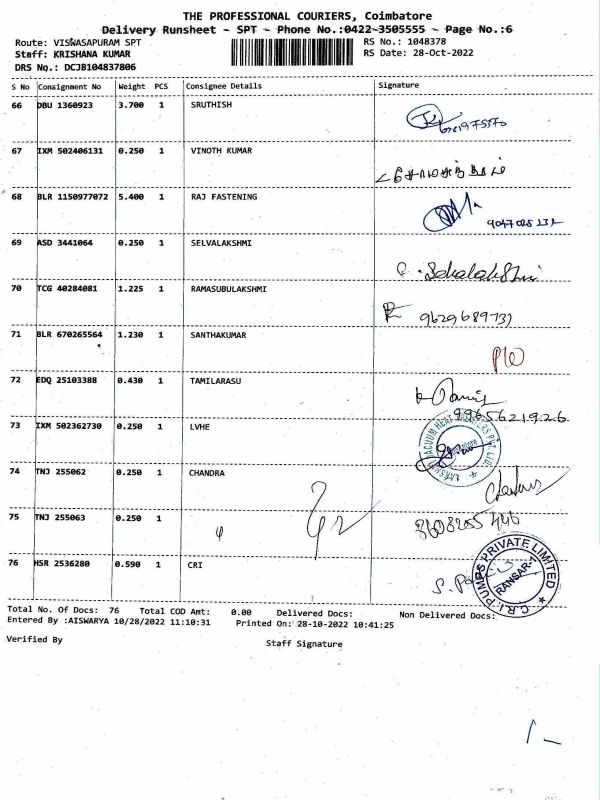 THE PROFESSIONAL COURIERS, Coimbatore
Delivery Runsheet - SPT - Phone No.:0422-3505555 - Page No.:6
Route: VISWASAPURAM SPT
RS No.: 1048378
Staff: KRISHANA KUMAR
RS Date: 28-Oct-2022
DRS No.: DCJB104837806
S No Consignment No Weight PCS Consignee Details Signature
66 DBU 1360923 3.700 1 SRUTHISH
67 IXM 502406131 0.250 1 VINOTH KUMAR
68 BLR 1150977072 5.400 1 RAJ FASTENING
9047025132
69 ASD 3441064 0.250 1 SELVALAKSHMI
70 TCG 40284081 1.225 1 RAMASUBULAKSHMI
9629689739
71 BLR 670265564 1.230 1 SANTHAKUMAR
72 EDQ 25103388 0.430 1 TAMILARASU
9965621926
73 IXM 502362730 0.250 1 LVHE
74 TNJ 255062 0.250 1 CHANDRA
75 TNJ 255063 0.250 1
76 HSR 2536280 0.590 1 CRI
C.R.I. PUMPS PRIVATE LIMITED
Total No. Of Docs: 76 Total COD Amt: 0.00 Delivered Docs: Non Delivered Docs:
Entered By :AISWARYA 10/28/2022 11:10:31 Printed On: 28-10-2022 10:41:25
Verified By Staff Signature